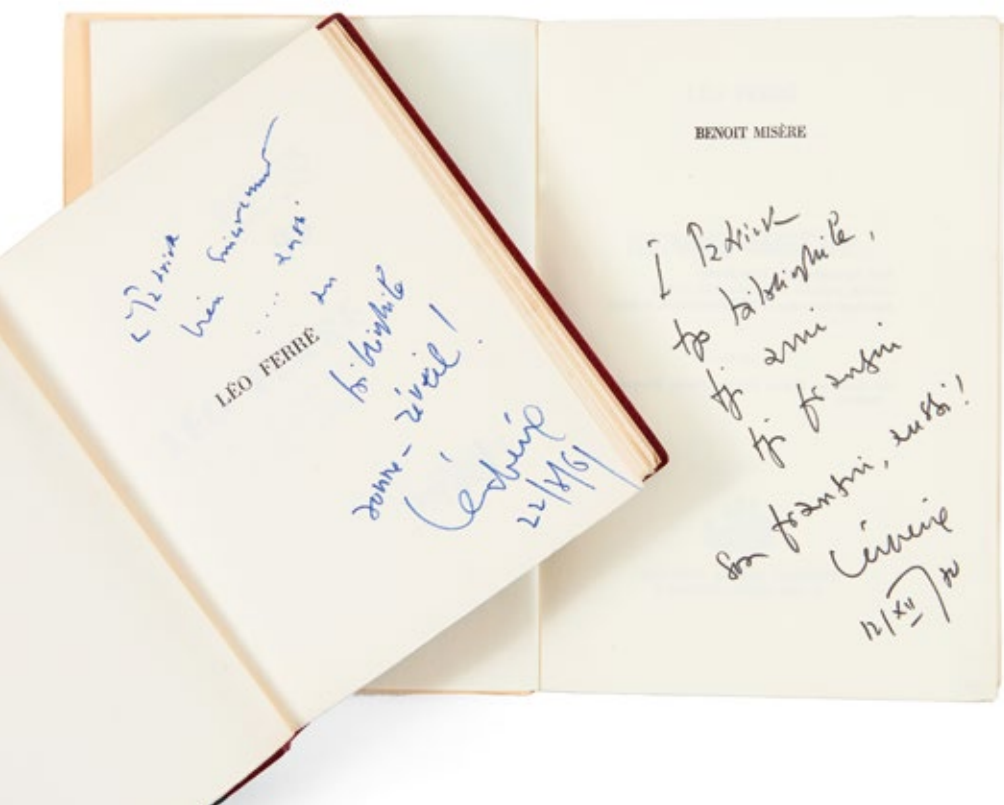 à Patrick
bien sincèrement
.... aussi
LÉO FERRÉ
au
bibliophile
donne-réveil !
Léo Ferré
22/8/61
BENOIT MISÈRE
à Patrick
tjs bibliophile,
tjs ami
tjs frangin
son frangin, aussi !
Léo Ferré
12/XII/70